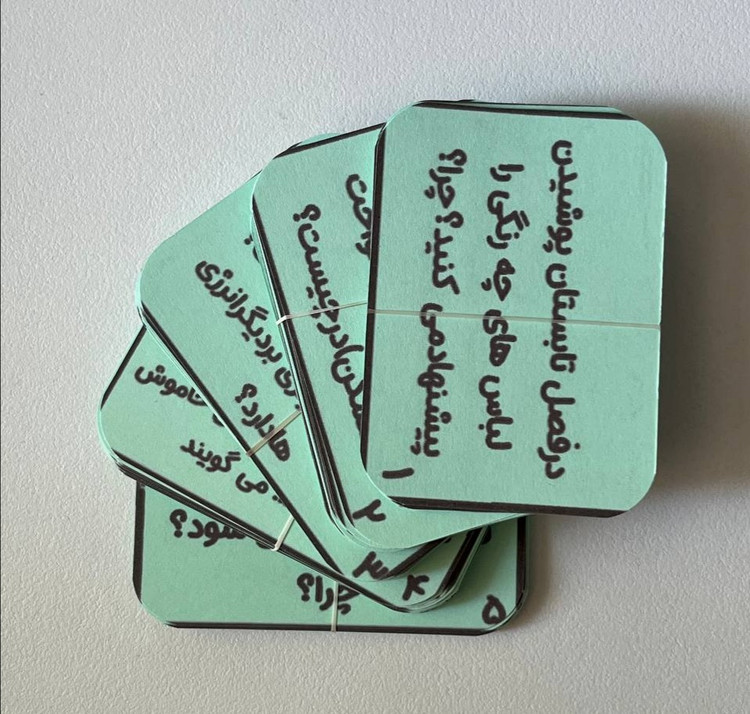 درفصل تابستان پوشیدن
لباس های چه رنگی را
پیشنهادمی کنید؟ چرا؟
۱
درچیست؟
۲
بردیگرانرژی
هادارد؟
۳
خاموش
می گویند
۴
شود؟
چرا؟
۵